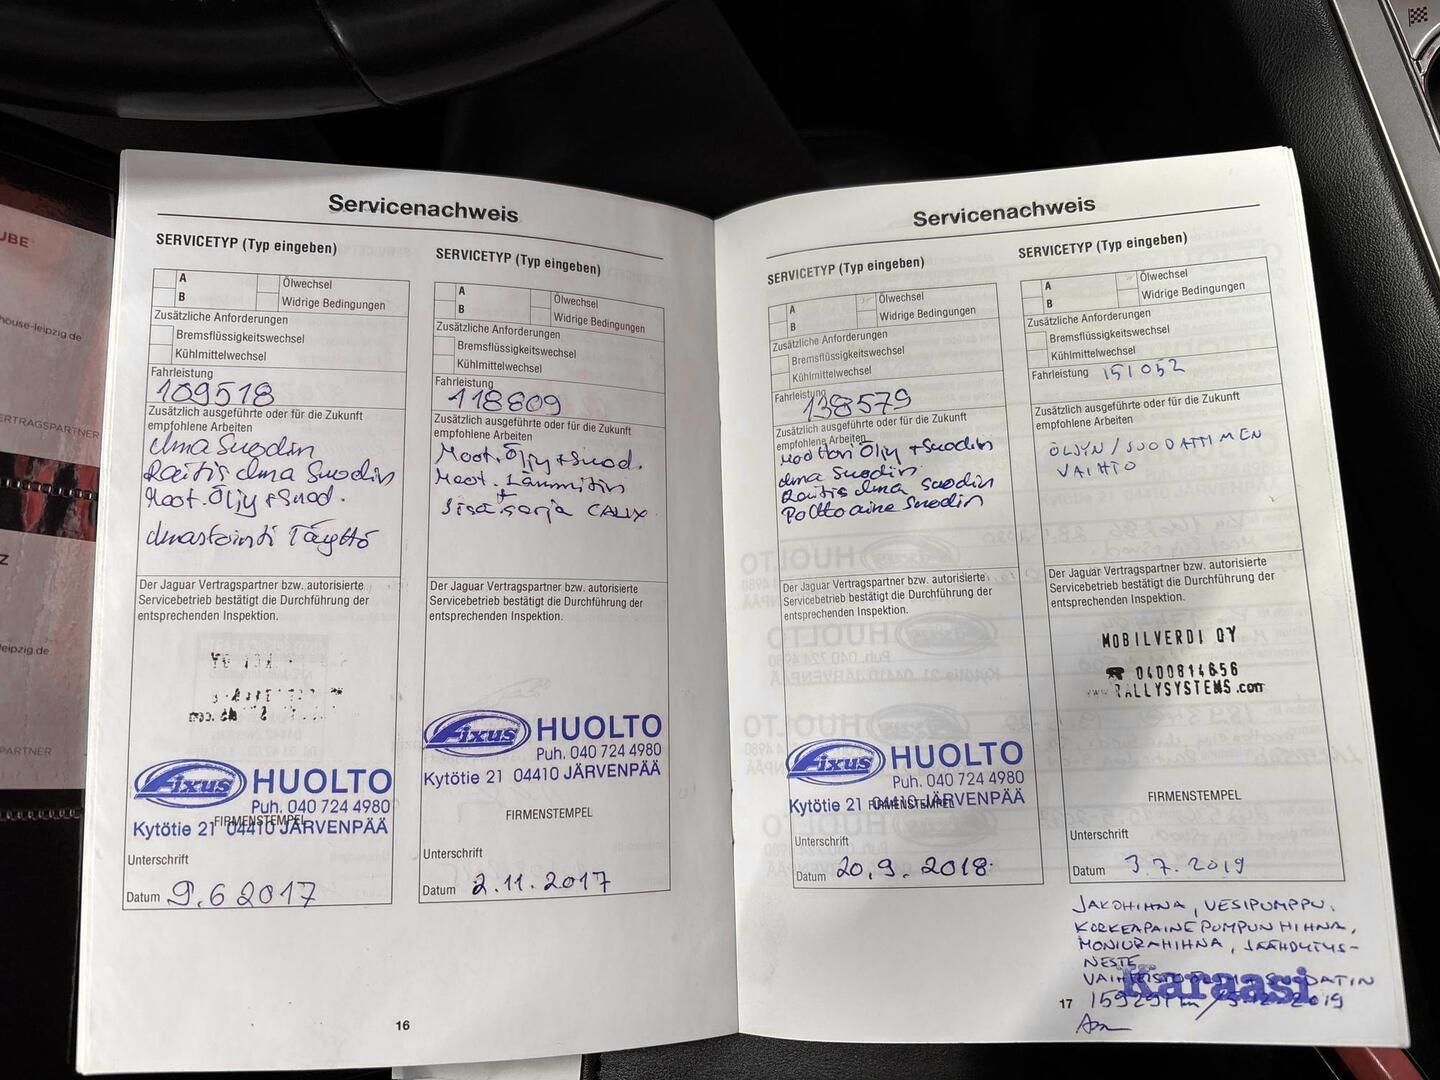 UBE
house-leipzig.de
ERTRAGSPARTNER
Z
eipzig.de
PARTNER
Servicenachweis
SERVICETYP (Typ eingeben)
A
B
Ölwechsel
Widrige Bedingungen
Zusätzliche Anforderungen
Bremsflüssigkeitswechsel
Kühlmittelwechsel
Fahrleistung
109518
Zusätzlich ausgeführte oder für die Zukunft
empfohlene Arbeiten
ilma Suodin
Raitis ilma Suodin
Moot. Öljy + Suod.
ilmastointi Täyttö
Der Jaguar Vertragspartner bzw. autorisierte
Servicebetrieb bestätigt die Durchführung der
entsprechenden Inspektion.
Fixus HUOLTO
Puh. 040 724 4980
Kytötie 21 04410 JÄRVENPÄÄ
FIRMENSTEMPEL
Unterschrift
Datum 9.6 2017
SERVICETYP (Typ eingeben)
A
B
Ölwechsel
Widrige Bedingungen
Zusätzliche Anforderungen
Bremsflüssigkeitswechsel
Kühlmittelwechsel
Fahrleistung
118809
Zusätzlich ausgeführte oder für die Zukunft
empfohlene Arbeiten
Moot. Öljy + Suod.
Moot. Lämmitin
+
Sisä sarja CALIX
Der Jaguar Vertragspartner bzw. autorisierte
Servicebetrieb bestätigt die Durchführung der
entsprechenden Inspektion.
Fixus HUOLTO
Puh. 040 724 4980
Kytötie 21 04410 JÄRVENPÄÄ
FIRMENSTEMPEL
Unterschrift
Datum 2.11.2017
16
Servicenachweis
SERVICETYP (Typ eingeben)
A
B
Ölwechsel
Widrige Bedingungen
Zusätzliche Anforderungen
Bremsflüssigkeitswechsel
Kühlmittelwechsel
Fahrleistung
138579
Zusätzlich ausgeführte oder für die Zukunft
empfohlene Arbeiten
Moottori Öljy + Suodin
ilma Suodin
Raitis ilma suodin
Polttoaine Suodin
Der Jaguar Vertragspartner bzw. autorisierte
Servicebetrieb bestätigt die Durchführung der
entsprechenden Inspektion.
Fixus HUOLTO
Puh. 040 724 4980
Kytötie 21 04410 JÄRVENPÄÄ
FIRMENSTEMPEL
Unterschrift
Datum 20.9.2018
SERVICETYP (Typ eingeben)
A
B
Ölwechsel
Widrige Bedingungen
Zusätzliche Anforderungen
Bremsflüssigkeitswechsel
Kühlmittelwechsel
Fahrleistung 151052
Zusätzlich ausgeführte oder für die Zukunft
empfohlene Arbeiten
ÖLJYN/SUODATTIMEN
VAIHTO
Der Jaguar Vertragspartner bzw. autorisierte
Servicebetrieb bestätigt die Durchführung der
entsprechenden Inspektion.
MOBILVERDI OY
☎ 0400814656
www.RALLYSYSTEMS.com
FIRMENSTEMPEL
Unterschrift
Datum 3.7.2019
JAKOHIHNA, VESIPUMPPU,
KORKEAPAINEPUMPUN HIHNA,
MONIURAHIHNA, JÄÄHDYTYS-
NESTE
SUODATIN
Karaasi
17